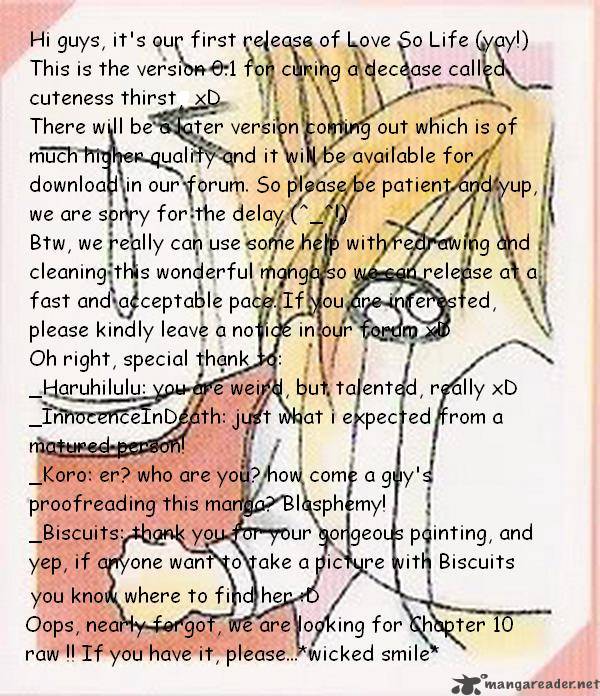 Hi guys, it's our first release of Love So Life (yay!)
This is the version 0.1 for curing a decease called
cuteness thirst xD
There will be a later version coming out which is of
much higher quality and it will be available for
download in our forum. So please be patient and yup,
we are sorry for the delay (^_^!)
Btw, we really can use some help with redrawing and
cleaning this wonderful manga so we can release at a
fast and acceptable pace. If you are interested,
please kindly leave a notice in our forum xD
Oh right, special thank to:
_Haruhilulu: you are weird, but talented, really xD
_InnocenceInDeath: just what i expected from a
matured person!
_Koro: er? who are you? how come a guy's
proofreading this manga? Blasphemy!
_Biscuits: thank you for your gorgeous painting, and
yep, if anyone want to take a picture with Biscuits
you know where to find her :D
Oops, nearly forgot, we are looking for Chapter 10
raw !! If you have it, please...*wicked smile*
mangareader.net